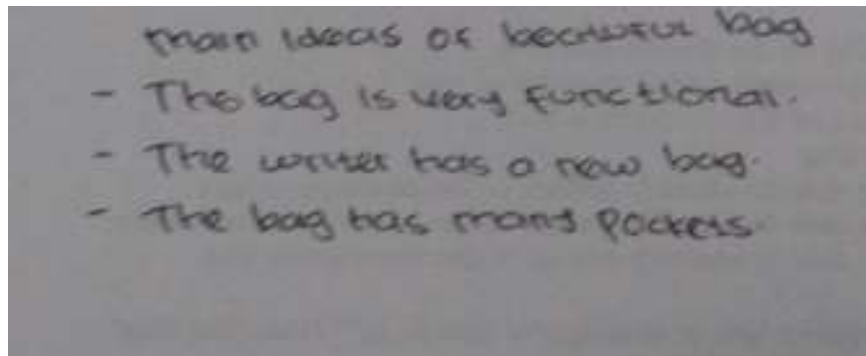 main ideas of beautiful bag
- The bag is very functional.
- The writer has a new bag.
- The bag has many pockets.